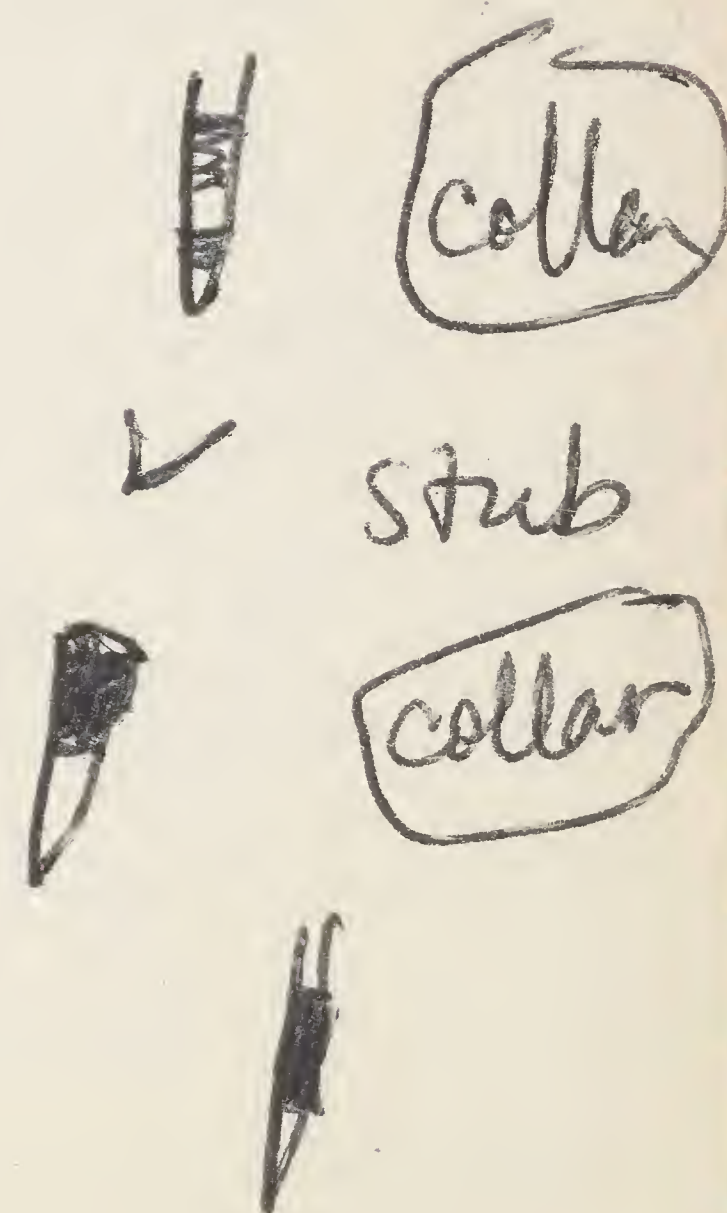 collar
stub
collar